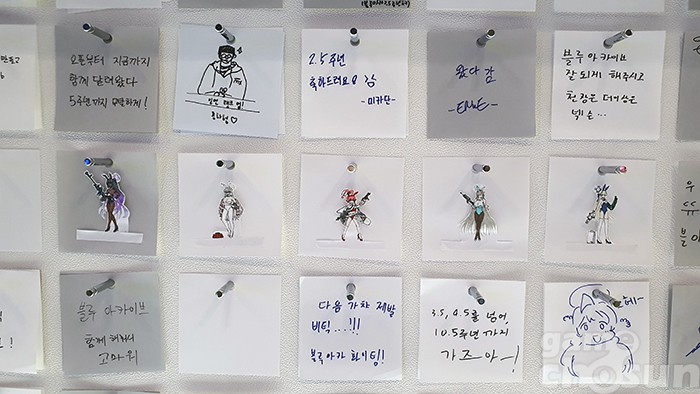 오픈부터 지금까지
함께 달려왔다
5주년까지 부탁하게!
2.5주년
축하드려요 감
-미카단-
왔다 감
블루 아카이브
잘 되게 해주시고
천장은 더이상은
우
쓔
블
블루 아카이브
함께 해줘서
고마워
다음 가챠 제발
비틱...!!!
블루아카 화이팅!
3.5, 4.5를 넘어,
10.5주년 까지
가즈아-!
헤~
game
chosun